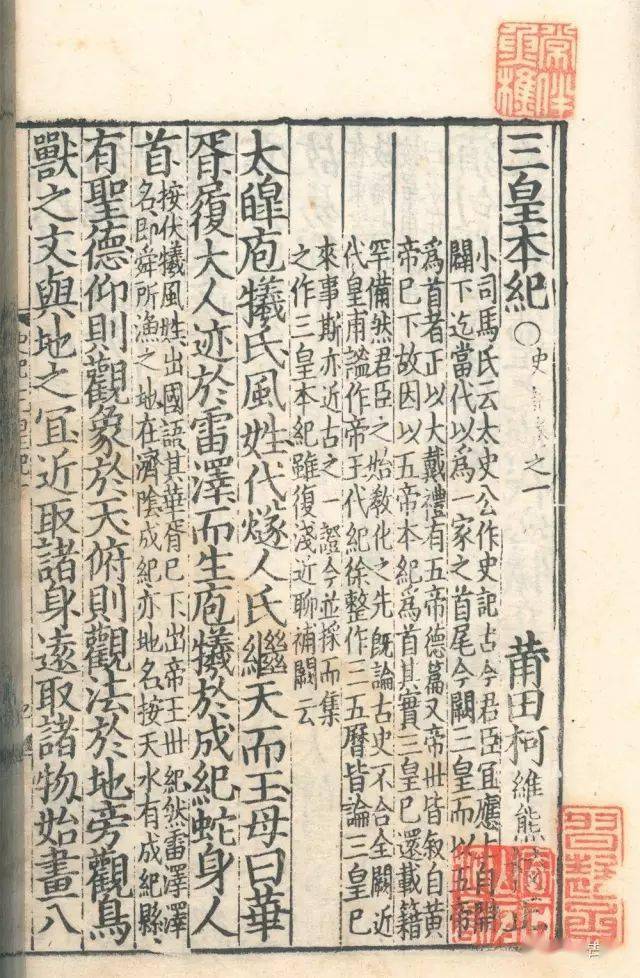 三皇本紀○史之一 莆田柯維熊
小司馬氏云太史公作史記古今君臣宜應上自開
闢下迄當代以爲一家之首尾今闕三皇而以五帝
爲首者正以大戴禮有五帝德篇又帝世皆叙自黃
帝已下故因以五帝本紀爲首其實三皇已還載籍
罕備然君臣之始教化之先既論古史不合全闕近
代皇甫謐作帝王代紀徐整作三五曆皆論三皇已
來事斯亦近古之一證今並採而集
之作三皇本紀雖復淺近聊補闕云
太皡庖犧氏風姓代燧人氏繼天而王母曰華
胥履大人迹於雷澤而生庖犧於成紀蛇身人
首
按伏犧風姓出國語其華胥已下出帝王世紀然雷澤澤
名即舜所漁之地在濟陰成紀亦地名按天水有成紀縣
有聖德仰則觀象於天俯則觀法於地旁觀鳥
獸之文與地之宜近取諸身遠取諸物始畫八